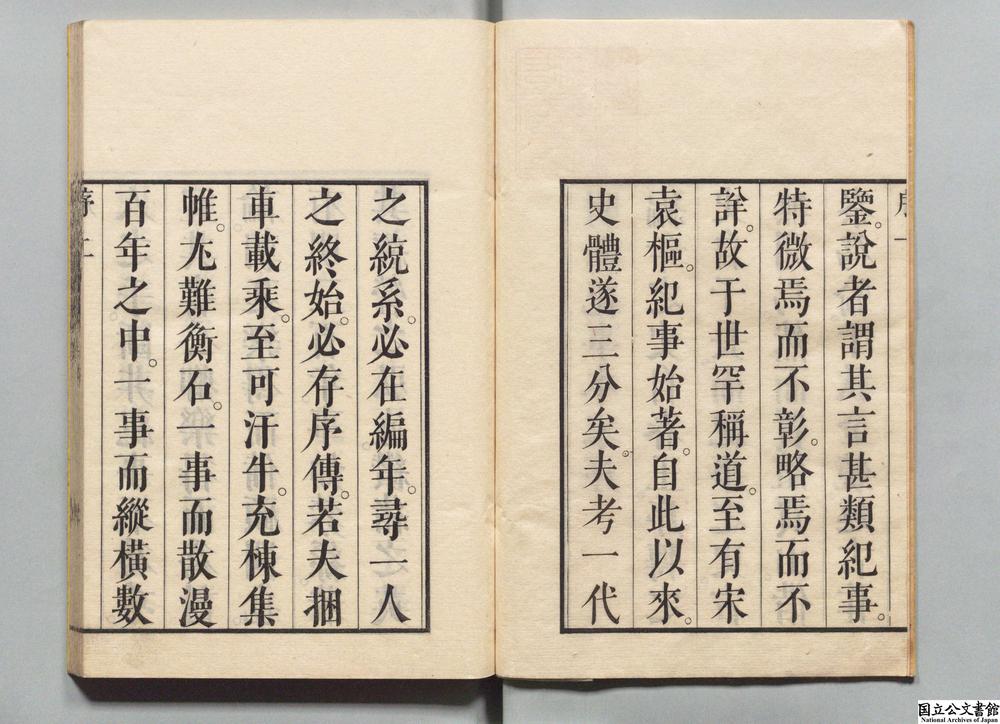 鑒。說者謂其言甚類紀事。
特微焉而不彰。略焉而不
詳。故于世罕稱道。至有宋
袁樞。紀事始著。自此以來。
史體遂三分矣。夫考一代
之統系。必在編年。尋一人
之終始。必存序傳。若夫捆
車載乘。至可汗牛。充棟集
帷。尤難衡石。一事而散漫
百年之中。一事而縱橫數
序二
国立公文書館
National Archives of Japan